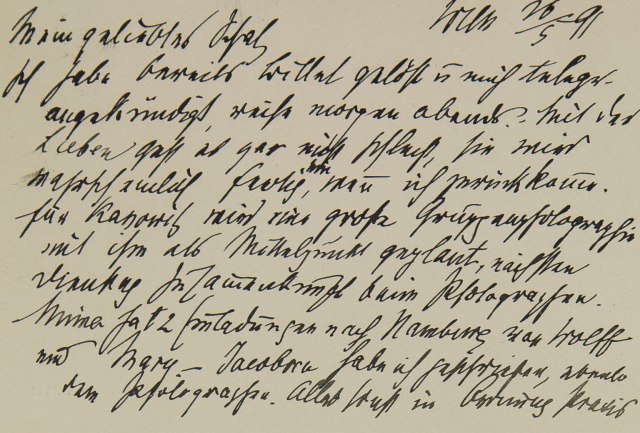 Wien 26/5 91
Mein geliebter Schatz
Ich habe bereits Billet gelöst u mich telegr.
angekündigt, reise morgen abends. Mit der
Lieben geht es gar nicht schlecht, sie wird
wahrscheinlich fertig sein, wenn ich zurückkomme.
Für Kassowitz wird eine große Gruppenphotographie
mit ihm als Mittelpunkt geplant, nächsten
Dienstag Zusammenkunft beim Photographen.
Minna hat 2 Einladungen nach Hamburg von Wolff
und Mary – Jacobsen habe ich geschrieben, ebenso
dem Photographen. Alles sonst in Ordnung Praxis